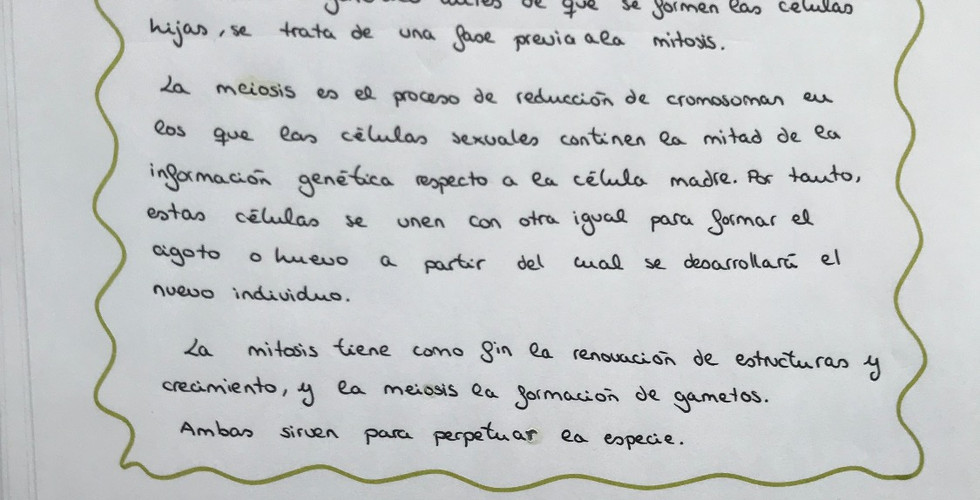 antes de que se formen las células
hijas, se trata de una fase previa a la mitosis.
La meiosis es el proceso de reducción de cromosomas en
los que las células sexuales continen la mitad de la
información genética respecto a la célula madre. Por tanto,
estas células se unen con otra igual para formar el
cigoto o huevo a partir del cual se desarrollará el
nuevo individuo.
La mitosis tiene como fin la renovación de estructuras y
crecimiento, y la meiosis la formación de gametos.
Ambas sirven para perpetuar la especie.